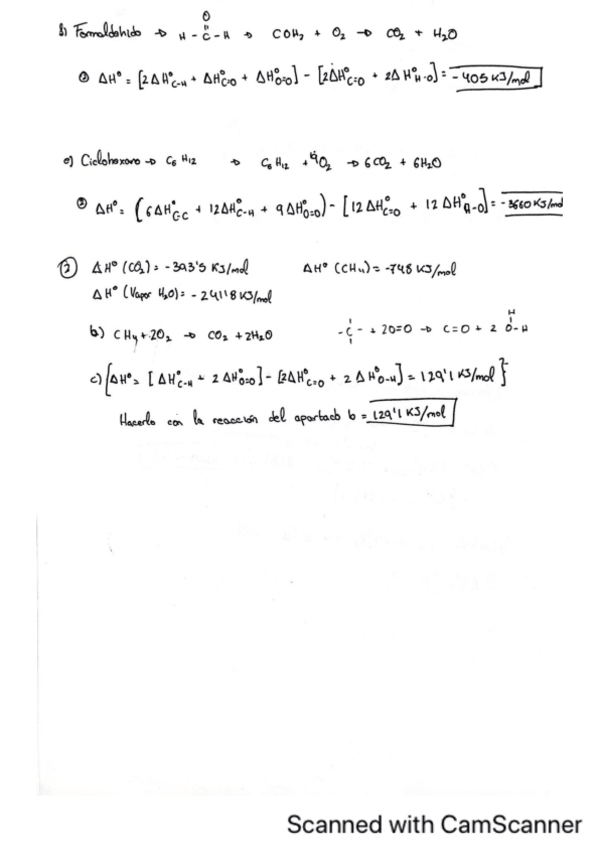 b) Formaldehido → H - C - H → COH₂ + O₂ → CO₂ + H₂O
O
② ΔH° = [2ΔH°C-H + ΔH°C=O + ΔH°O=O] - [2ΔH°C=O + 2ΔH°H-O] = -405 KJ/mol
e) Ciclohexano → C₆H₁₂ → C₆H₁₂ + 9O₂ → 6CO₂ + 6H₂O
② ΔH° = (6ΔH°C-C + 12ΔH°C-H + 9ΔH°O=O) - [12ΔH°C=O + 12ΔH°H-O] = -3660 KJ/mol
⑦ ΔH° (CO₂) = -393'5 KJ/mol ΔH° (CH₄) = -74'8 KJ/mol
ΔH° (Vapor H₂O) = -241'8 KJ/mol
b) CH₄ + 2O₂ → CO₂ + 2H₂O -C- + 2O=O → C=O + 2 O-H
H
c) {ΔH° = [ΔH°C-H + 2ΔH°O=O] - [2ΔH°C=O + 2ΔH°O-H] = 129'1 KJ/mol}
Hacerlo con la reacción del apartado b = 129'1 KJ/mol
Scanned with CamScanner